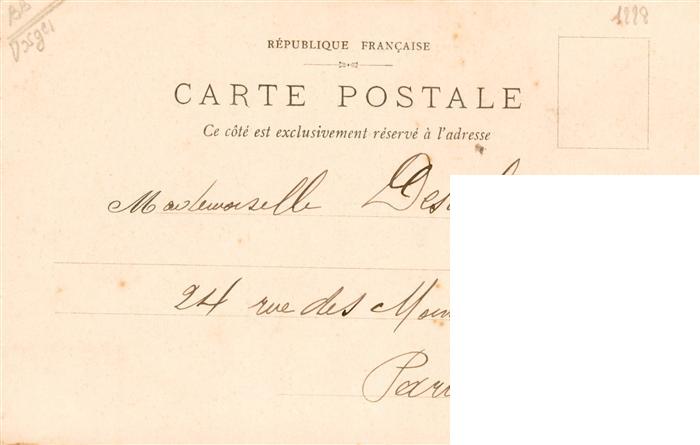 1228
RÉPUBLIQUE FRANÇAISE
CARTE POSTALE
Ce côté est exclusivement réservé à l'adresse
Mademoiselle
24 rue des